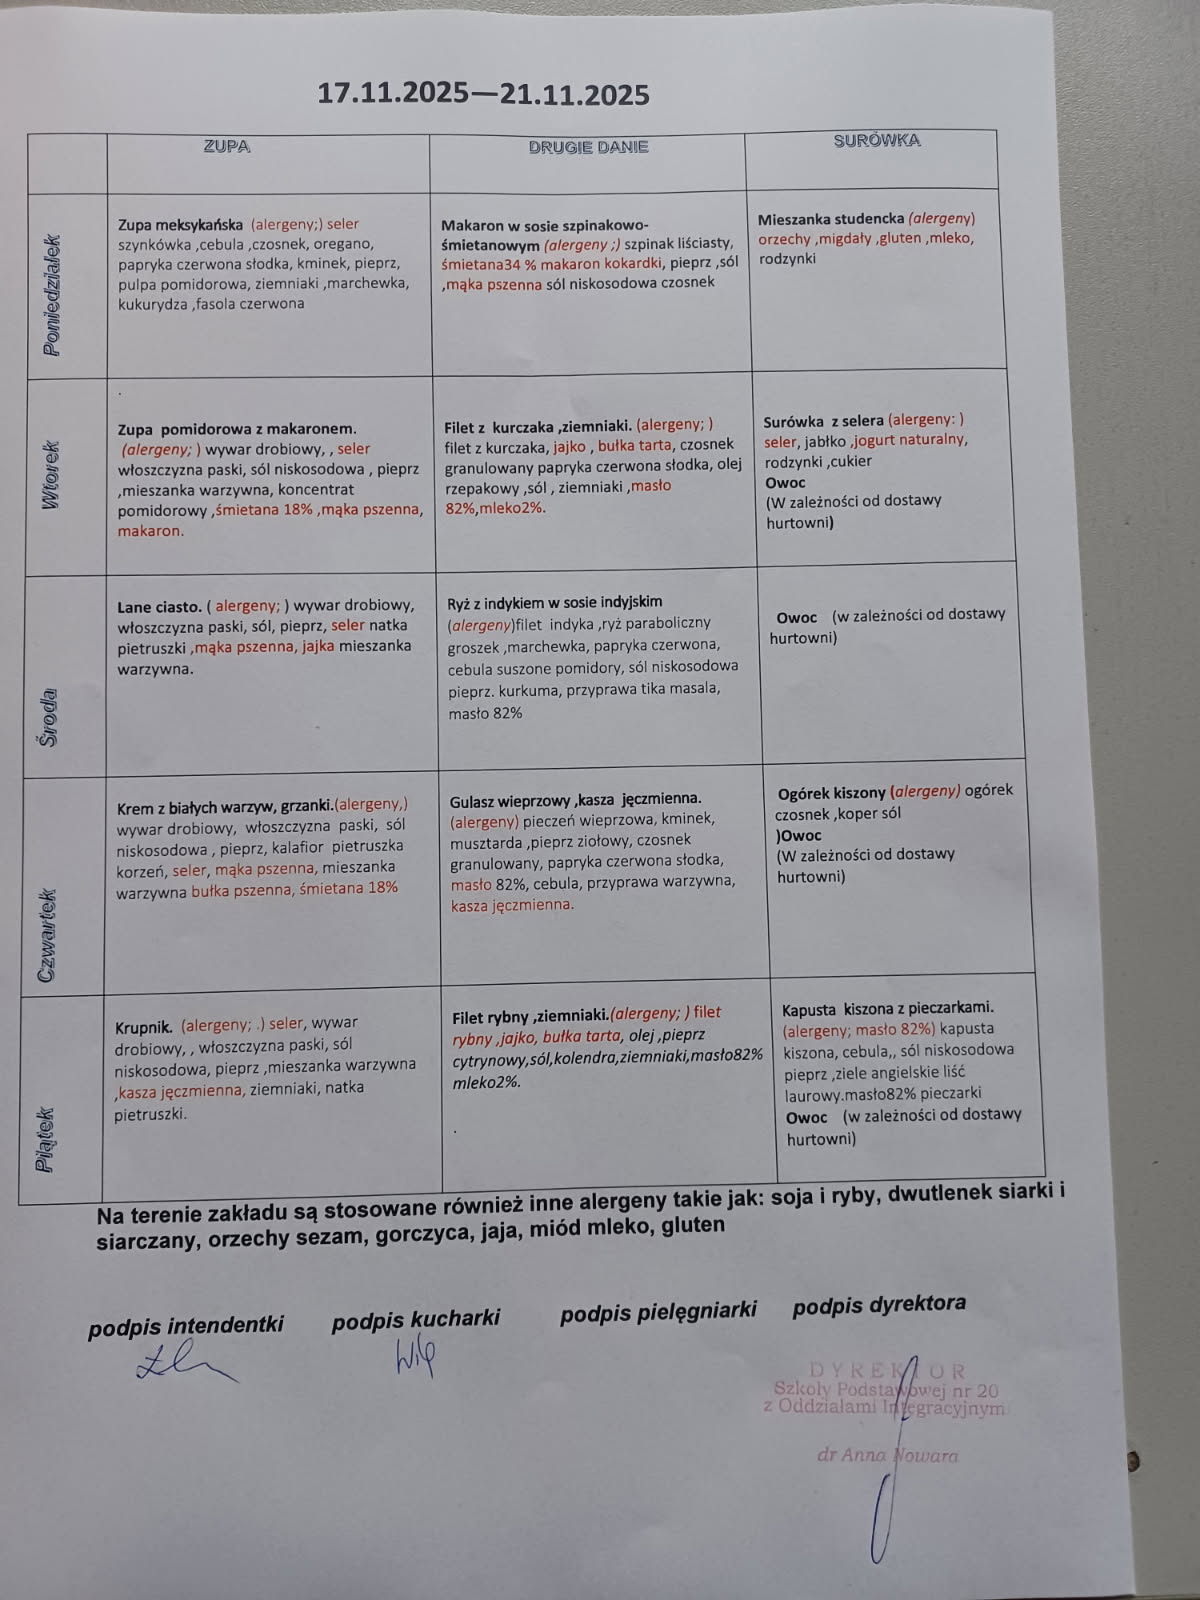 17.11.2025—21.11.2025
ZUPA
DRUGIE DANIE
SURÓWKA
Poniedziałek
Zupa meksykańska (alergeny;) seler
szynkówka ,cebula ,czosnek, oregano,
papryka czerwona słodka, kminek, pieprz,
pulpa pomidorowa, ziemniaki ,marchewka,
kukurydza ,fasola czerwona
Makaron w sosie szpinakowo-
śmietanowym (alergeny ;) szpinak liściasty,
śmietana34 % makaron kokardki, pieprz ,sól
,mąka pszenna sól niskosodowa czosnek
Mieszanka studencka (alergeny)
orzechy ,migdały ,gluten ,mleko,
rodzynki
Wtorek
Zupa pomidorowa z makaronem.
(alergeny; ) wywar drobiowy, , seler
włoszczyzna paski, sól niskosodowa , pieprz
,mieszanka warzywna, koncentrat
pomidorowy ,śmietana 18% ,mąka pszenna,
makaron.
Filet z kurczaka ,ziemniaki. (alergeny; )
filet z kurczaka, jajko , bułka tarta, czosnek
granulowany papryka czerwona słodka, olej
rzepakowy ,sól , ziemniaki ,masło
82%,mleko2%.
Surówka z selera (alergeny: )
seler, jabłko ,jogurt naturalny,
rodzynki ,cukier
Owoc
(W zależności od dostawy
hurtowni)
Środa
Lane ciasto. ( alergeny; ) wywar drobiowy,
włoszczyzna paski, sól, pieprz, seler natka
pietruszki ,mąka pszenna, jajka mieszanka
warzywna.
Ryż z indykiem w sosie indyjskim
(alergeny)filet indyka ,ryż paraboliczny
groszek ,marchewka, papryka czerwona,
cebula suszone pomidory, sól niskosodowa
pieprz. kurkuma, przyprawa tika masala,
masło 82%
Owoc (w zależności od dostawy
hurtowni)
Czwartek
Krem z białych warzyw, grzanki.(alergeny,)
wywar drobiowy, włoszczyzna paski, sól
niskosodowa , pieprz, kalafior pietruszka
korzeń, seler, mąka pszenna, mieszanka
warzywna bułka pszenna, śmietana 18%
Gulasz wieprzowy ,kasza jęczmienna.
(alergeny) pieczeń wieprzowa, kminek,
musztarda ,pieprz ziołowy, czosnek
granulowany, papryka czerwona słodka,
masło 82%, cebula, przyprawa warzywna,
kasza jęczmienna.
Ogórek kiszony (alergeny) ogórek
czosnek ,koper sól
)Owoc
(W zależności od dostawy
hurtowni)
Piątek
Krupnik. (alergeny; .) seler, wywar
drobiowy, , włoszczyzna paski, sól
niskosodowa, pieprz ,mieszanka warzywna
,kasza jęczmienna, ziemniaki, natka
pietruszki.
Filet rybny ,ziemniaki.(alergeny; ) filet
rybny ,jajko, bułka tarta, olej ,pieprz
cytrynowy,sól,kolendra,ziemniaki,masło82%
mleko2%.
.
Kapusta kiszona z pieczarkami.
(alergeny; masło 82%) kapusta
kiszona, cebula,, sól niskosodowa
pieprz ,ziele angielskie liść
laurowy.masło82% pieczarki
Owoc (w zależności od dostawy
hurtowni)
Na terenie zakładu są stosowane również inne alergeny takie jak: soja i ryby, dwutlenek siarki i
siarczany, orzechy sezam, gorczyca, jaja, miód mleko, gluten
podpis intendentki podpis kucharki podpis pielęgniarki podpis dyrektora
DYREKTOR
Szkoły Podstawowej nr 20
z Oddziałami Integracyjnym
dr Anna Nowara